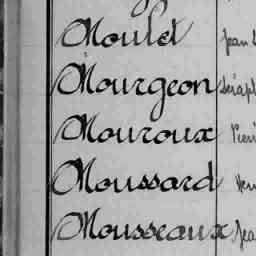 Moulet
Mourgeon
Mouroux
Moussard
Mousseaux